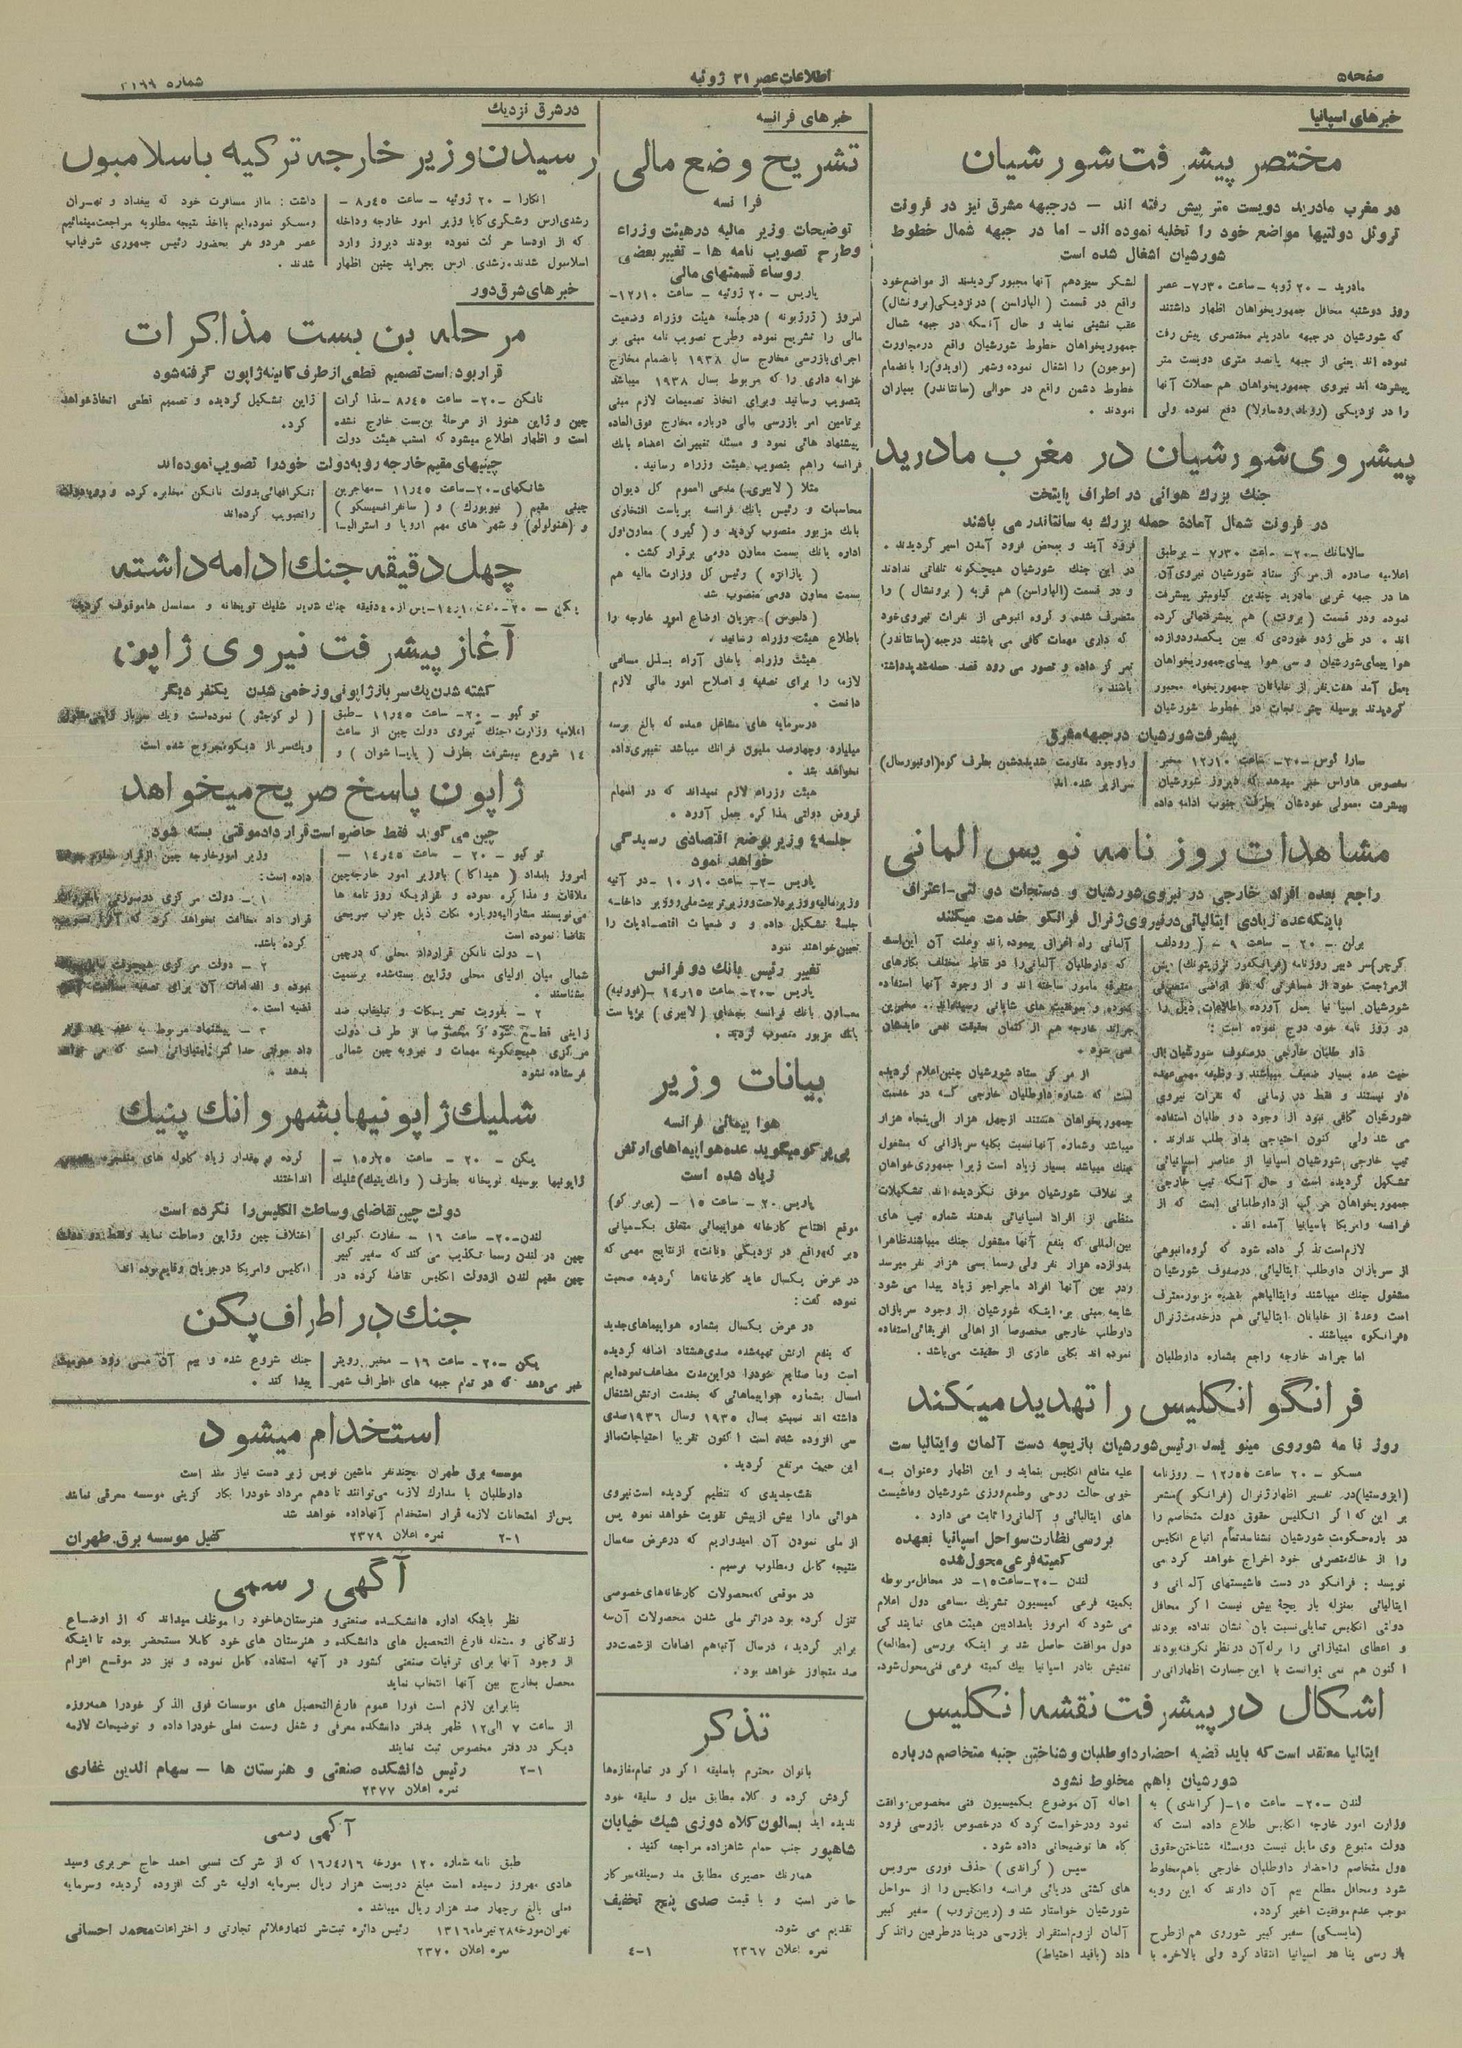 صفحه۵
اطلاعات عصر ۲۱ ژوئیه
شماره ۳۱۶۹
خبرهای اسپانیا
مختصر پیشرفت شورشیان
در مغرب مادرید دویست متر پیش رفته اند — درجبهه مشرق نیز در فرونت
تروئل دولتیها مواضع خود را تخلیه نموده اند - اما در جبهه شمال خطوط
شورشیان اشغال شده است
مادرید - ۲۰ ژویه - ساعت ۷٫۳۰- عصر
روز دوشنبه محافل جمهوریخواهان اظهار داشتند
که شورشیان درجبهه مادرید مختصری پیش رفت
نموده اند یعنی از جبهه پانصد متری دویست متر
پیشرفته اند نیروی جمهوریخواهان هم حملات آنها
را در نزدیکی دفع نموده ولی
لشکر سیزدهم آنها مجبور گردیدند از مواضع خود
واقع در قسمت ( الباراسن ) درنزدیکی (برونشال)
عقب نشینی نماید و حال آنکه در جبهه شمال
جمهوریخواهان خطوط شورشیان واقع درمجاورت
(موجون) را اشغال نموده وشهر (اویدو)را بانضمام
خطوط دشمن واقع در حوالی (سانتاندر) بمباران
نمودند .
پیشروی شورشیان در مغرب مادرید
جنك بزرك هوائی در اطراف پایتخت
در فرونت شمال آمادهٔ حمله بزرك به سانتاندر می باشند
سالامانك -۲۰- ساعت ۷٫۳۰ - برطبق
اعلامیه صادره از مرکز ستاد شورشیان نیروی آن
ها در جبهه غربی مادرید چندین کیلومتر پیشرفت
نموده ودر قسمت ( برونت ) هم پیشرفتهائی کرده
اند . در طی زدو خوردی که بین یکصدودوازده
هوا پیمای شورشیان و سی هوا پیمای جمهوریخواهان
بعمل آمد هفت نفر از خلبانان جمهوریخواه مجبور
گردیدند بوسیله چتر نجات در خطوط شورشیان
فرود آیند و بمحض فرود آمدن اسیر گردیدند .
در این جنك شورشیان هیچگونه تلفاتی ندادند
و در قسمت (الباراسن) هم قریه ( برونشال ) را
متصرف شده و گروه انبوهی از نفرات نیروی خود
که داری مهمات کافی می باشند درجبهه (سانتاندر)
تمرکز داده و تصور می رود قصد حمله شدید داشته
باشند .
پیشرفت شورشیان درجبهه مشرق
سارا گوس -۲۰- ساعت ۱۲٫۱۰ مخبر
مخصوص هاواس خبر میدهد که دیروز شورشیان
پیشرفت معمولی خودشان بطرف جنوب ادامه داده
وباوجود مقاومت شدید دشمن بطرف کوه(اونیورسال)
سرازیر شده اند
مشاهدات روز نامه نویس المانی
راجع بعده افراد خارجی در نیروی شورشیان و دستجات دو لتی-اعتراف
باینکه عده زیادی ایتالیائی در نیروی ژنرال فرانگو خدمت میکنند
برلن - ۲۰ - ساعت ۹ - ( رودلف
کرچر)سر دبیر روزنامه (فرانکفور ترزیتونك) پس
ازمراجعت خود از مسافرتی که در اراضی متصرفی
شورشیان اسپا نیا بعمل آورده اطلاعات ذیل را
در روز نامه خود درج نموده است :
داو طلبان خارجی درصفوف شورشیان از
حیث عده بسیار ضعیف میباشند و وظیفه مهمی عهده
دار نیستند و فقط در زمانی که نفرات نیروی
شورشیان کافی نبود از وجود دو طلبان استفاده
می شد ولی کنون احتیاجی بداو طلب ندارند .
تیپ خارجی شورشیان اسپانیا از عناصر اسپانیائی
تشکیل گردیده است و حال آنکه تیپ خارجی
جمهوریخواهان مرکب از داوطلبانی است که از
فرانسه وامریکا باسپانیا آمده اند .
لازم است تذکر داده شود که گروه انبوهی
از سربازان داوطلب ایتالیائی درصفوف شورشیان
مشغول جنك میباشند وایتالیاهم بقضیه مزبور معترف
است وعدهٔ از خلبانان ایتالیائی هم درخدمت ژنرال
فرانکو میباشند .
اما جراید خارجه راجع بشماره داوطلبان
آلمانی راه اغراق پیموده اند وعلت آن این است
که داوطلبان آلمانی را در نقاط مختلف بکارهای
متفرقه مامور ساخته اند و از وجود آنها استفاده
نموده و بموقعیت های شایانی رسیده اند . مخبرین
جراید خارجه هم از کتمان حقیقت نفعی عایدشان
نمی شود .
از مرکز ستاد شورشیان چنین اعلام گردیده
است که شماره داوطلبان خارجی که در خدمت
جمهوریخواهان هستند ازچهل هزار الی پنجاه هزار
میباشد وشماره آنها نسبت بکلیه سربازانی که مشغول
جنك میباشد بسیار زیاد است زیرا جمهوری خواهان
بر خلاف شورشیان موفق نگردیده اند تشکیلات
منظمی از افراد اسپانیائی بدهند شماره تیپ های
بین المللی که بنفع آنها مشغول جنك میباشند ظاهرا
بدوازده هزار نفر ولی رسما بسی هزار نفر میرسد
ودر بین آنها افراد ماجراجو زیاد پیدا می شود
شایعه مبنی بر اینکه شورشیان از وجود سربازان
داوطلب خارجی مخصوصا از اهالی افریقائی استفاده
نموده اند بکلی عاری از حقیقت می باشد .
فرانگو انگلیس را تهدید میکند
روز نا مه شوروی مینو یسد:رئیس شورشیان بازیچه دست آلمان وایتالیا ست
مسکو - ۲۰ ساعت ۱۲٫۵۵ - روزنامه
(ایزوستیا)در تفسیر اظهار ژنرال (فرانکو)مشعر
بر این که اگر انگلیس حقوق دولت متخاصم را
در باره حکومت شورشیان نشناسد تمام اتباع انگلیس
را از خاك متصرفی خود اخراج خواهد کرد می
نویسد : فرانکو در دست فاشیستهای آلمانی و
ایتالیائی بمنزله بازیچهٔ بیش نیست اگر محافل
دولتی انگلیس تمایلی نسبت بان نشان نداده بودند
و اعطای امتیازاتی را برله آن در نظر نگرفته بودند
اکنون هم نمی توانست با این جسارت اظهاراتی بر
علیه منافع انگلیس بنماید و این اظهار وعنوان به
خوبی حالت روحی وطمع ورزی شورشیان وفاشیست
های ایتالیائی و آلمانی را ثابت می دارد .
بررسی نظارت سواحل اسپانیا بعهده
کمیته فرعی محول شده
لندن -۲۰-ساعت ۱۵- در محافل مربوطه
بکمیته فرعی کمیسیون تشریك مساعی دول اعلام
می شود که امروز بامداد بین هیئت های نمایندگی
دول موافقت حاصل شد بر اینکه بررسی (مطالعه)
تفتیش بنادر اسپانیا بیك کمیته فرعی فنی محول شود.
اشکال در پیشرفت نقشه انگلیس
ایتالیا معتقد است که باید قضیه احضار داوطلبان وشناختن جنبه متخاصم درباره
شورشیان باهم مخلوط نشود
لندن -۲۰- ساعت ۱۵-( گراندی ) به
وزارت امور خارجه انگلیس طلاع داده است که
دولت متبوع وی مایل نیست دومسئله شناختن حقوق
دول متخاصم واحضار داوطلبان خارجی باهم مخلوط
شود ومحافل مطلع بیم آن دارند که این رویه
موجب عدم موفقیت اخیر گردد.
(مایسکی) سفیر کبیر شوروی هم از طرح
بازرسی بنا در اسپانیا انتقاد کرد ولی بالاخره با
احاله آن موضوع بکمیسیون فنی مخصوص وافقت
نمود ودرخواست کرد که درخصوص بازرسی فرود
گاه ها توضیحاتی داده شود .
سپس ( گراندی ) حذف فوری سرویس
های کشتی دریائی فرانسه وانگلیس را از سواحل
شورشیان خواستار شد و (ریبن تروپ) سفیر کبیر
آلمان لزوم استقرار بازرسی در بنادر طرفین راتذکر
داد (باقید احتیاط)
خبرهای فرانسه
تشریح وضع مالی
فرانسه
توضیحات وزیر مالیه در هیئت وزراء
وطرح تصویب نامه ها - تغییر بعضی
روساء قسمتهای مالی
پاریس - ۲۰ ژوئیه - ساعت ۱۲٫۱۰-
امروز ( ژرژبونه ) درجلسه هیئت وزراء وضعیت
مالی را تشریح نموده وطرح تصویب نامه مبنی بر
اجرای بازرسی مخارج سال ۱۹۳۸ بانضمام مخارج
خزانه داری را که مربوط بسال ۱۹۳۸ میباشد
بتصویب رسانید وبرای اتخاذ تصمیمات لازم مبنی
برتامین امر بازرسی مالی درباره مخارج فوق العاده
پیشنهاد هائی نمود و مسئله تغییرات اعضاء بانك
فرانسه راهم بتصویب هیئت وزراء رسانید .
مثلا ( لابیری) مدعی العموم کل دیوان
محاسبات و رئیس بانك فرانسه بریاست افتخاری
بانك مزبور منصوب گردید و (گیرو ) معاون اول
اداره بانك بسمت معاون دومی برقرار گشت .
( بازانژه ) رئیس کل وزارت مالیه هم
بسمت معاون دومی منصوب شد
( دلبوس ) جریان اوضاع امور خارجه را
باطلاع هیئت وزراء رسانید .
هیئت وزراء باتفاق آراء بذل مساعی
لازمه را برای تصفیه و اصلاح امور مالی لازم
دانست .
درسرمایه های مشاغل عمده که بالغ برسه
میلیارد وچهارصد ملیون فرانك میباشد تغییری داده
نخواهد شد .
هیئت وزراء لازم نمیداند که در اتمام
قروض دولتی مذاکره بعمل آورد .
جلسه ٤ وزیر بوضع اقتصادی رسیدگی
خواهد نمود
پاریس -۲۰- ساعت ۱۰٫۱۰ - در آتیه
وزیرمالیه ووزیرفلاحت ووزیرتربیت ملی ووزیر داخله
جلسهٔ تشکیل داده و وضعیات اقتصادیات را
تعیین خواهند نمود
تغییر رئیس بانك دو فرانس
پاریس -۲۰- ساعت ۱۴٫۱۵ -(فورنیه)
معاون بانك فرانسه بجای (لابیری ) بریاست
بانك مزبور منصوب گردید .
بیانات وزیر
هوا پیمائی فرانسه
پی یر کو میگوید عده هواپیماهای ارتش
زیاد شده است
پاریس ۲۰ - ساعت ۱۵ - (پی یر کو)
موقع افتتاح کارخانه هواپیمائی متعلق بکمپانی
«برگه»واقع در نزدیکی «نانت» ازنتایج مهمی که
در عرض یکسال عاید کارخانه ها گردیده صحبت
نموده گفت :
در عرض یکسال بشماره هواپیماهای جدید
که بنفع ارتش تهیه شده صدی هشتاد اضافه گردیده
است وما صنایع خودرا دراین مدت مضاعف نموده ایم
امسال بشماره هواپیماهائی که بخدمت ارتش اشتغال
داشته اند نسبت بسال ۱۹۳۵ وسال ۱۹۳۶ صدی
سی افزوده شده است اکنون تقریبا احتیاجات ما از
این حیث مرتفع گردید .
نقشه جدیدی که تنظیم گردیده است نیروی
هوائی مارا بیش از پیش تقویت خواهد نمود پس
از ملی نمودن آن امیدواریم که درعرض سه سال
بنتیجه کامل ومطلوب برسیم .
در موقعی که محصولات کارخانه های خصوصی
تنزل کرده بود دراثر ملی شدن محصولات آن سه
برابر گردید ، درسال آتیه هم اضافات از شصت در
صد متجاوز خواهد بود .
تذکر
بانوان محترم باسلیقه اگر در تمام مغازه ها
گردش کرده و کلاه مطابق میل و سلیقه خود
ندیده اید بسالون کلاه دوزی شیك خیابان
شاهپور جنب حمام شاهزاده مراجعه کنید .
همه رنك حصیری مطابق مد وسیله سرکار
حا ضر است و با قیمت صدی پنج تخفیف
تقدیم می شود.
نمره اعلان ۲۳۶۷ ۱-٤
در شرق نزدیك
رسیدن وزیر خارجه ترکیه باسلامبول
انکارا - ۲۰ ژوئیه - ساعت ۸٫۴۵ -
رشدی ارس وشگری کایا وزیر امور خارجه وداخله
که از اودسا حرکت نموده بودند دیروز وارد
اسلامبول شدند.رشدی ارس بجراید چنین اظهار
داشت : مااز مسافرت خود که ببغداد و تهران
ومسکو نموده ایم بااخذ نتیجه مطلوبه مراجعت مینمائیم
عصر هردو نفر بحضور رئیس جمهوری شرفیاب
شدند .
خبرهای شرق دور
مرحله بن بست مذاکرات
قرار بود، است تصمیم قطعی از طرف کابینه ژاپون گرفته شود
نانکن -۲۰- ساعت ۸٫۴۵ -مذاکرات
چین و ژاپن هنوز از مرحلهٔ بن بست خارج نشده
است و اظهار اطلاع میشود که امشب هیئت دولت
ژاپن تشکیل گردیده و تصمیم قطعی اتخاذ خواهد
کرد.
چینیهای مقیم خارجه رویه دولت خودرا تصویب نموده اند
شانگهای -۲۰-ساعت ۱۱٫۴۵ -مهاجرین
چینی مقیم ( نیویورك ) و ( سانفرانسیسکو )
و (هنولولو) و شهر های مهم اروپا و استرالیا
تلگرافهائی بدولت نانکن مخابره کرده و رویه دولت
راتصویب کرده اند
چهل دقیقه جنك ادامه داشته
پکن - ۲۰ - ساعت ۱۴٫۱۰ -پس از ۴۰ دقیقه جنك شدید شلیك توپخانه و مسلسل ها موقوف گردید
آغاز پیشرفت نیروی ژاپون
کشته شدن یك سرباز ژاپونی وزخمی شدن یکنفر دیگر
توکیو - ۲۰- ساعت ۱۱٫۴۵ -طبق
اعلامیه وزارت جنك نیروی دولت چین از ساعت
۱۴ شروع بپیشرفت بطرف ( پاپا شوان ) و
( لو کوچئو ) نموده است ویك سرباز ژاپنی مقتول
ویك سرباز دیگر مجروح شده است
ژاپون پاسخ صریح میخواهد
چین می گوید فقط حاضر است قرار داد موقتی بسته شود
توکیو - ۲۰ - ساعت ۱۴٫۴۵ -
امروز بامداد ( هیداکا ) باوزیر امور خارجه چین
ملاقات و مذاکره نموده و بقراریکه روز نامه ها
می نویسند مشارالیه درباره نکات ذیل جواب صریحی
تقاضا نموده است
۱- دولت نانکن قرارداد محلی که در چین
شمالی میان اولیای محلی وژاپن بسته شده برسمیت
بشناسند .
۲ - بفوریت تحریکات و تبلیغات ضد
ژاپنی قطع شود و مخصوصا از طرف دولت
مرکزی هیچگونه مهمات و نیرو به چین شمالی
فرستاده نشود
وزیر امور خارجه چین ازقرار معلوم جواب
داده است :
۱ - دولت مرکزی درصورتی
قرار داد مخالفت نخواهد کرد که
کرده باشد.
۲ - دولت مرکزی هیچوقت
نبوده و اقدامات آن برای تصفیه مسالمت
قضیه است .
۳ - پیشنهاد مربوط به عقد یك قرار
داد موقتی حداکثر امتیازاتی است که می تواند
بدهد .
شلیك ژاپونیها بشهر وانك پنیك
پکن - ۲۰ - ساعت ۱۵٫۲۵ -
ژاپونیها بوسیله توپخانه بطرف ( وانك پنیك) شلیك
کرده و مقدار زیاد گلوله های
انداختند
دولت چین تقاضای وساطت انگلیس را نکرده است
لندن-۲۰- ساعت ۱۶ - سفارت کبرای
چین در لندن رسما تکذیب می کند که سفیر کبیر
چین مقیم لندن ازدولت انگلیس تقاضا کرده در
اختلاف چین وژاپن وساطت نماید وفقط دو دولت
انگلیس وامریکا درجریان وقایع بوده اند
جنك در اطراف پکن
پکن -۲۰- ساعت ۱۶ - مخبر رویتر
خبر می دهد که در تمام جبهه های اطراف شهر
جنك شروع شده و بیم آن می رود عمومیت
پیدا کند .
استخدام میشود
موسسه برق طهران بچندنفر ماشین نویس زبر دست نیاز مند است
داوطلبان با مدارك لازمه می توانند تا دهم مرداد خودرا بکار گزینی موسسه معرفی نمایند
پس از امتحانات لازمه قرار استخدام آنها داده خواهد شد
۱-۲ نمره اعلان ۲۳۷۹ کفیل موسسه برق طهران
آگهی رسمی
نظر باینکه اداره دانشکده صنعتی و هنرستان ها خود را موظف میداند که از اوضاع
زندگانی و مشغله فارغ التحصیل های دانشکده و هنرستان های خود کاملا مستحضر بوده تا اینکه
از وجود آنها برای ترقیات صنعتی کشور در آتیه استفاده کامل نموده و نیز در موقع اعزام
محصل بخارج بین آنها انتخاب نماید
بنابراین لازم است فورا عموم فارغ التحصیل های موسسات فوق الذکر خودرا همه روزه
از ساعت ۷ الی ۱۲ ظهر بدفتر دانشکده معرفی و شغل وسمت فعلی خودرا داده و توضیحات لازمه
دیگر در دفتر مخصوص ثبت نمایند
۱-۲ رئیس دانشکده صنعتی و هنرستان ها — سهام الدین غفاری
نمره اعلان ۲۳۷۷
آگهی رسمی
طبق نامه شماره ۱۲۰ مورخه ۱۶٫۴٫۱۶ که از شرکت نسبی احمد حاج حریری وسید
هادی بهروز رسیده است مبلغ دویست هزار ریال بسرمایه اولیه شرکت افزوده گردیده وسرمایه
فعلی بالغ بچهار صد هزار ریال میباشد .
تهران مورخه ۲۸ تیر ماه ۱۳۱۶ رئیس دائره ثبت شرکتها و علائم تجارتی و اختراعات محمد احسانی
نمره اعلان ۲۳۷۰